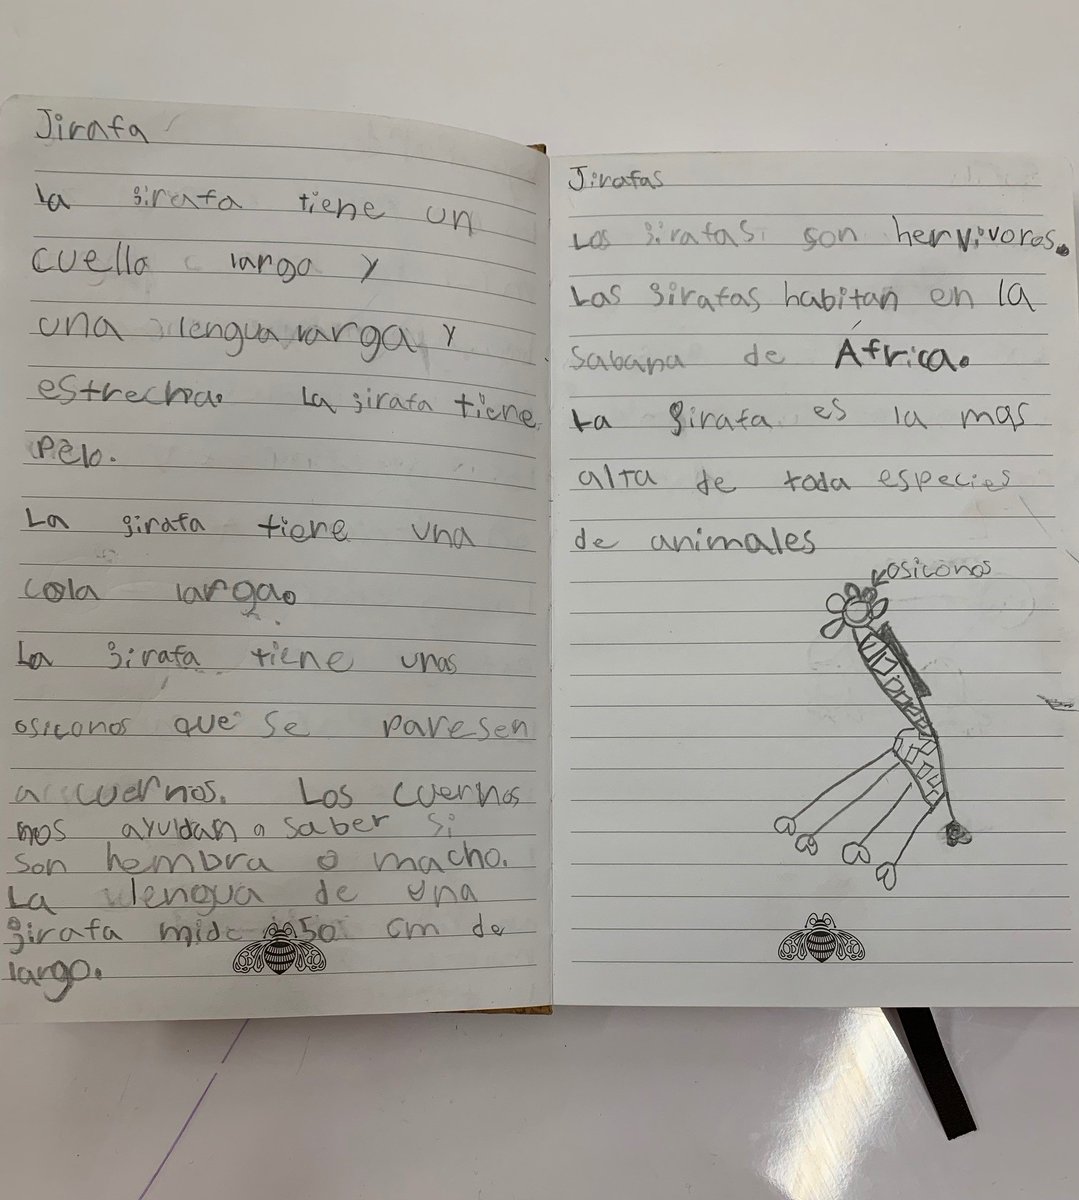 Jirafa
La jirafa tiene un
cuello largo y
una lengua larga y
estrecha. La jirafa tiene
pelo.
La jirafa tiene una
cola larga.
La jirafa tiene unas
osiconos que se paresen
a cuernos. Los cuernos
nos ayudan a saber si
son hembra o macho.
La lengua de una
jirafa mide 50 cm de
largo.
Jirafas
Las jirafas son hervivoros.
Las jirafas habitan en la
sabana de África.
La jirafa es la mas
alta de toda especies
de animales
osiconos